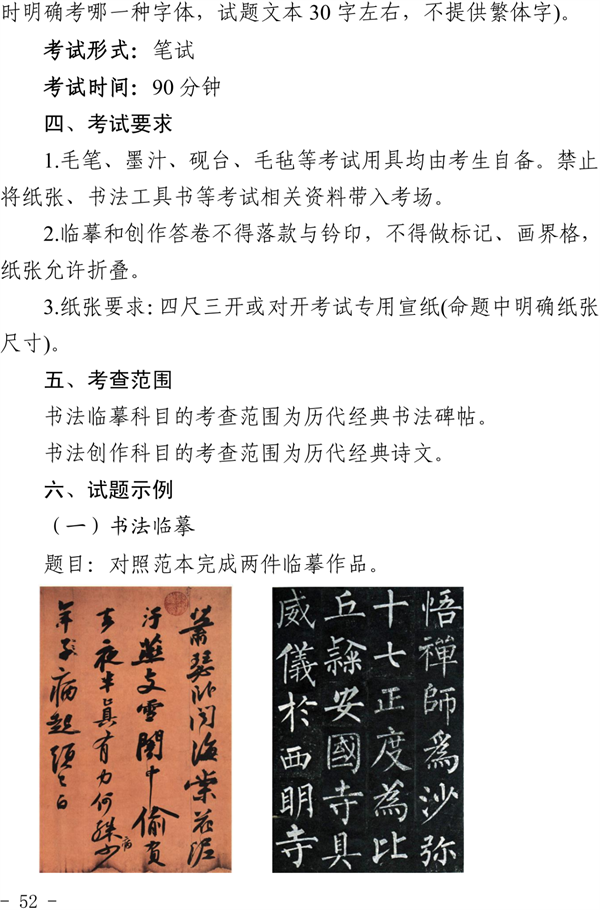 时明确考哪一种字体，试题文本 30 字左右，不提供繁体字)。
考试形式：笔试
考试时间：90 分钟
四、考试要求
1.毛笔、墨汁、砚台、毛毡等考试用具均由考生自备。禁止
将纸张、书法工具书等考试相关资料带入考场。
2.临摹和创作答卷不得落款与钤印，不得做标记、画界格，
纸张允许折叠。
3.纸张要求：四尺三开或对开考试专用宣纸(命题中明确纸张
尺寸)。
五、考查范围
书法临摹科目的考查范围为历代经典书法碑帖。
书法创作科目的考查范围为历代经典诗文。
六、试题示例
（一）书法临摹
题目：对照范本完成两件临摹作品。
蕭瑟卧聞海棠花泥
汙燕支雪闇中偷負
去夜半真有力何殊病少
年子病起頭已白
悟禪師爲沙弥
十七正度為比
丘隸安國寺具
威儀於西明寺
- 52 -